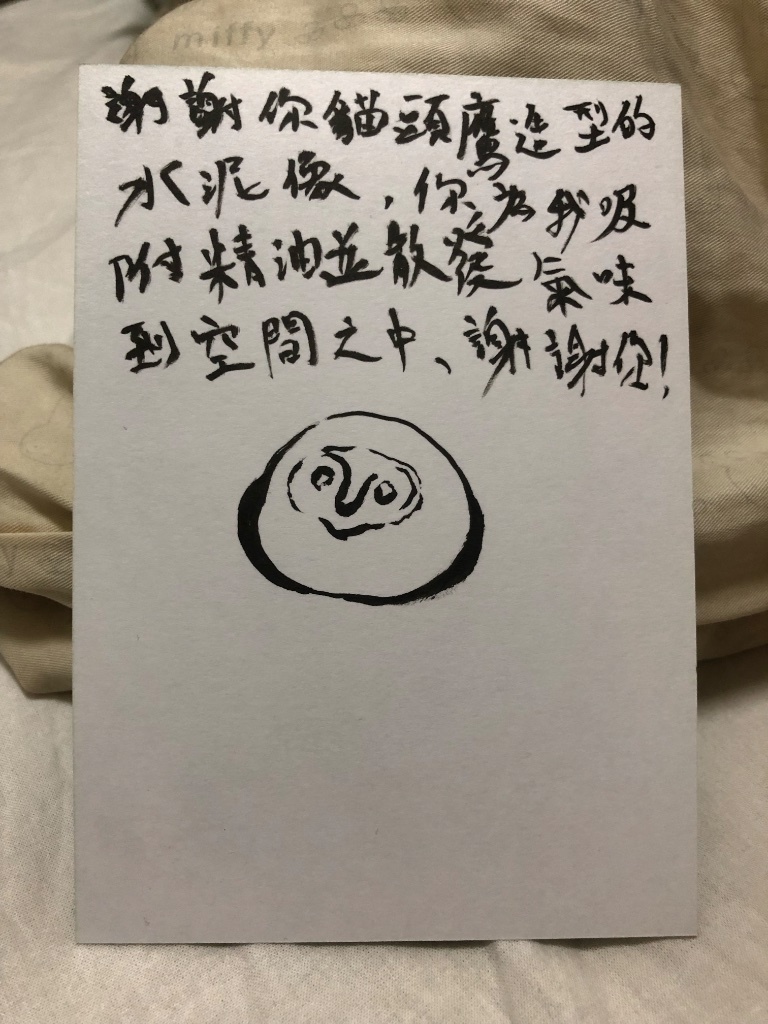 miffy
謝謝你貓頭鷹造型的
水泥像,你為我吸
附精油並散發氣味
到空間之中、謝謝你!